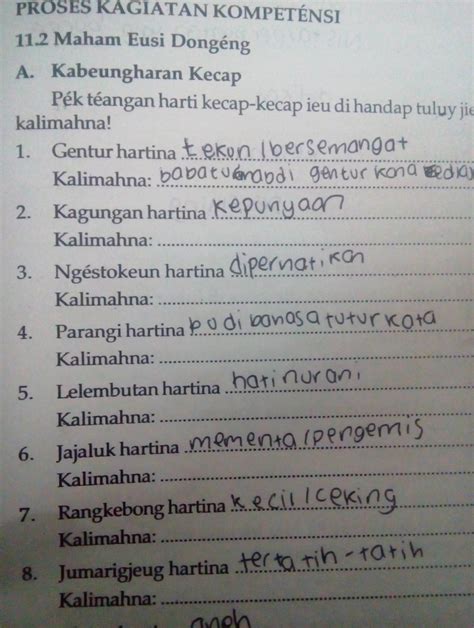 PROSES KAGIATAN KOMPETÉNSI
11.2 Maham Eusi Dongéng
A. Kabeungharan Kecap
Pék téangan harti kecap-kecap ieu di handap tuluy jie
kalimahna!
1. Gentur hartina tekun / bersemangat
Kalimahna: babatu abdi gentur kana
2. Kagungan hartina kepunyaan
Kalimahna:
3. Ngéstokeun hartina diperhatikan
Kalimahna:
4. Parangi hartina budi bahasa tutur kata
Kalimahna:
5. Lelembutan hartina hati nurani
Kalimahna:
6. Jajaluk hartina mementa / pengemis
Kalimahna:
7. Rangkebong hartina kecil / ceking
Kalimahna:
8. Jumarigjeug hartina tertatih-tatih
Kalimahna:
aneh